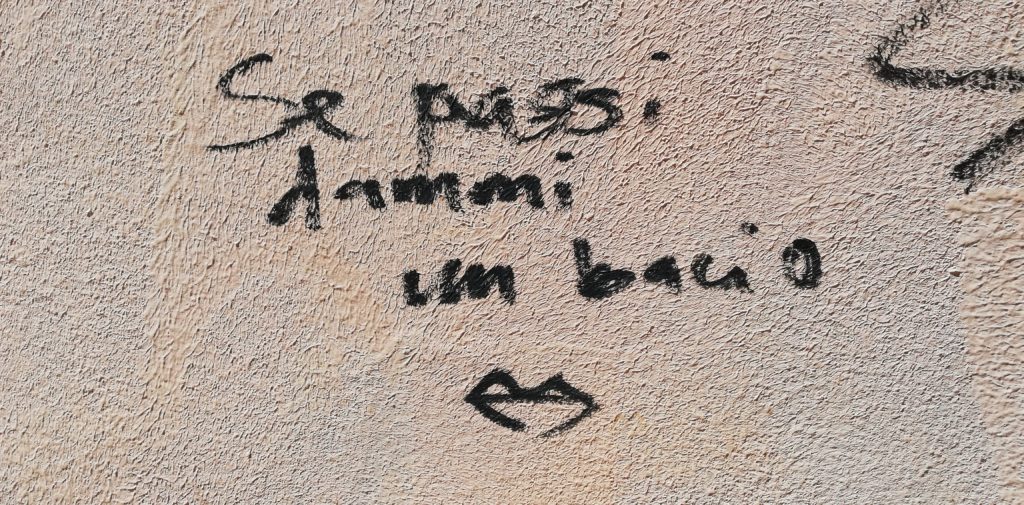 Se passi
dammi
un bacio